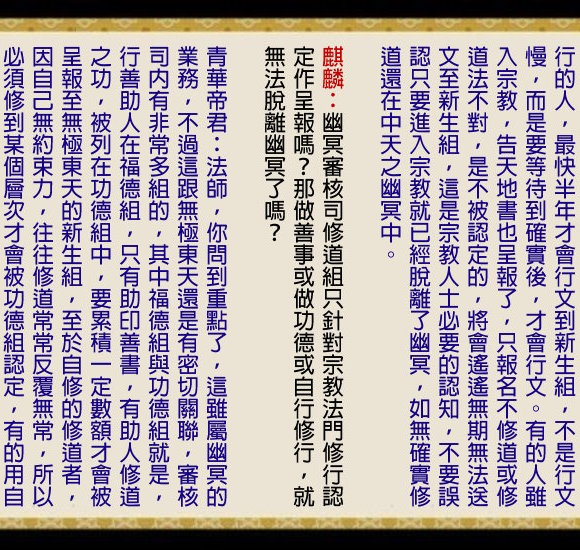 行的人，最快半年才會行文到新生組，不是行文
慢，而是要等待到確實後，才會行文。有的人雖
入宗教，告天地書也呈報了，只報名不修道或修
道法不對，是不被認定的，將會遙遙無期無法送
文至新生組，這是宗教人士必要的認知，不要誤
認只要進入宗教就已經脫離了幽冥，如無確實修
道還在中天之幽冥中。
麒麟：幽冥審核司修道組只針對宗教法門修行認
定作呈報嗎？那做善事或做功德或自行修行，就
無法脫離幽冥了嗎？
青華帝君：法師，你問到重點了，這雖屬幽冥的
業務，不過這跟無極東天還是有密切關聯，審核
司內有非常多組的，其中福德組與功德組就是，
行善助人在福德組，只有助印善書，有助人修道
之功，被列在功德組中，要累積一定數額才會被
呈報至無極東天的新生組，至於自修的修道者，
因自己無約束力，往往修道常常反覆無常，所以
必須修到某個層次才會被功德組認定，有的用自